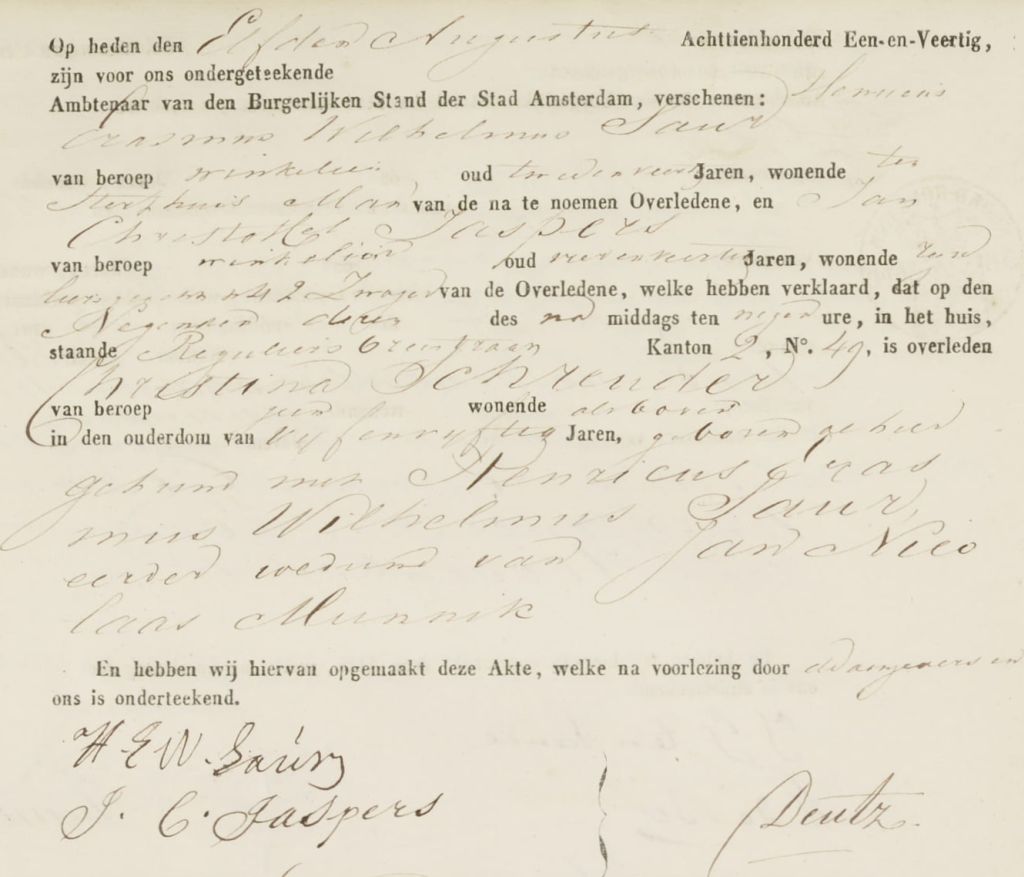 Op heden den Elfden Augustus Achttienhonderd Een-en-Veertig,
zijn voor ons ondergeteekende
Ambtenaar van den Burgerlijken Stand der Stad Amsterdam, verschenen: Henricus
Erasmus Wilhelmus Saur
van beroep winkelier oud tweeenveertig Jaren, wonende ten
Sterfhuis Man van de na te noemen Overledene, en Jan
Christoffel Jaspers
van beroep winkelier oud Jaren, wonende
42 Zwager van de Overledene, welke hebben verklaard, dat op den
Negenden dezer des na middags ten negen ure, in het huis,
staande Reguliers Breestraat Kanton 2, No. 49, is overleden
Christina Schreuder
van beroep geen wonende als boven
in den ouderdom van Vyfenvyftig Jaren, geboren alhier
gehuwd met Henricus Eras
mus Wilhelmus Saur,
eerder weduwe van Jan Nico
laas Munnik
En hebben wij hiervan opgemaakt deze Akte, welke na voorlezing door de aangevers en
ons is onderteekend.
H. E. W. Saúr
J. C. Jaspers
Deutz.